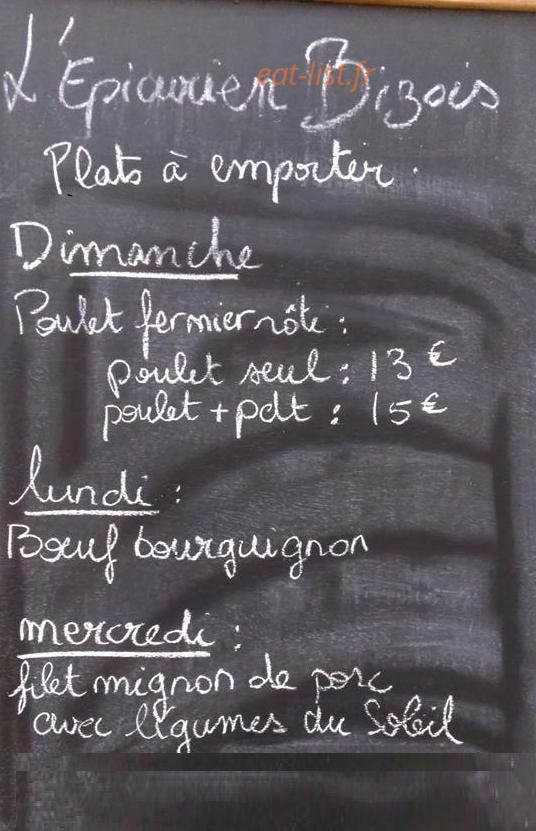 L'Epicurien Bizois
eat-list.fr
Plats à emporter.
Dimanche
Poulet fermier rôti :
poulet seul : 13 €
poulet + pdt : 15 €
lundi :
Bœuf bourguignon
mercredi :
filet mignon de porc
avec légumes du Soleil